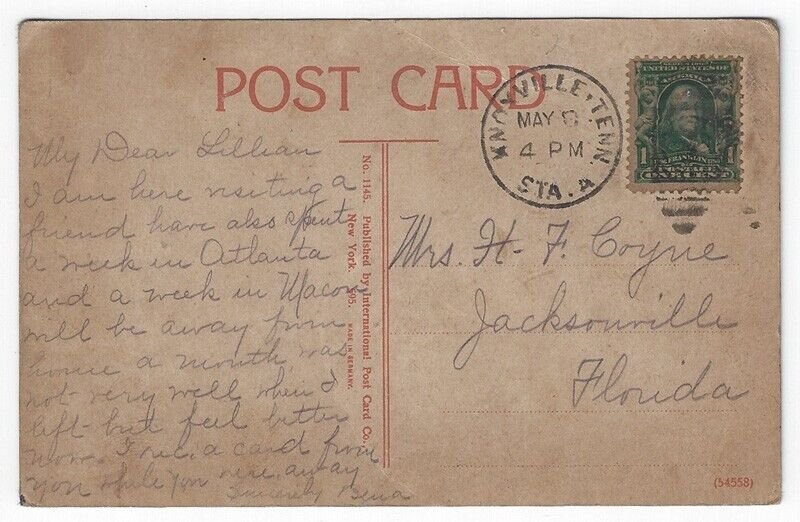 POST CARD
KNOXVILLE, TENN
MAY
4 PM
STA. A
SERIES 1902
UNITED STATES OF
1 FRANKLIN 1
POSTAGE
ONE CENT
My Dear Lillian
I am here visiting a
friend have also spent
a week in Atlanta
and a week in Macon
will be away from
home a month was
not very well when I
left- but feel better
now. I rec. a card from
you while you were away
Sincerely
Mrs. H. F. Coyne
Jacksonville
Florida
No. 1145. Published by International Post Card Co.,
New York. 595. MADE IN GERMANY.
(54558)